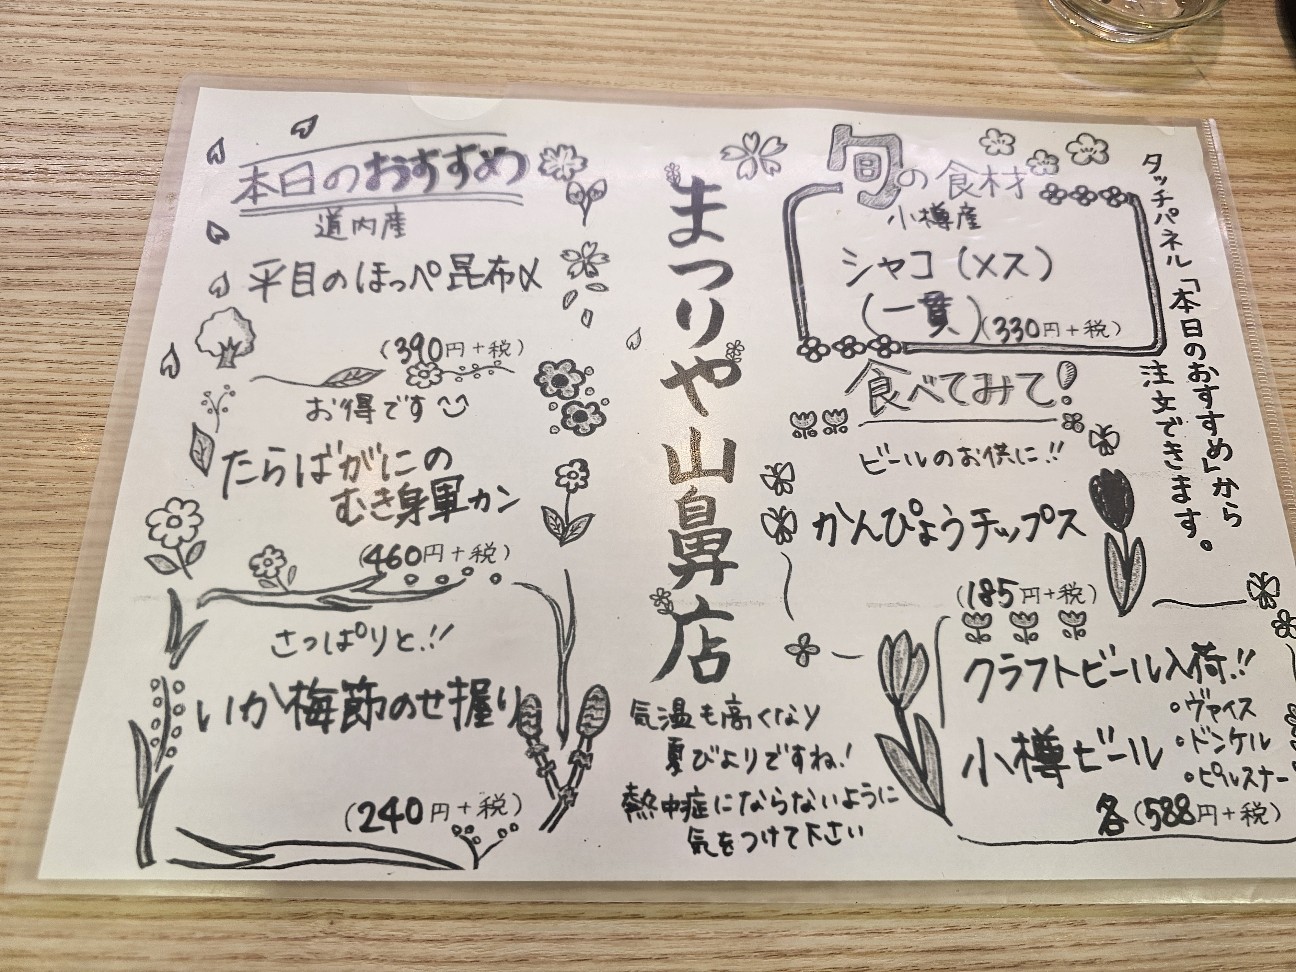 本日のおすすめ
道内産
平目のほっぺ昆布〆
(390円+税)
お得です
たらばがにの
むき身軍カン
(460円+税)
さっぱりと!!
いか梅節のせ握り
(240円+税)
まつりや山鼻店
気温も高くなり
夏びよりですね!
熱中症にならないように
気をつけて下さい
旬の食材
小樽産
シャコ(メス)
(一貫)(330円+税)
食べてみて!
ビールのお供に!!
かんぴょうチップス
(185円+税)
クラフトビール入荷!!
小樽ビール
・ヴァイス
・ドンケル
・ピルスナー
各(588円+税)
タッチパネル「本日のおすすめ」から
注文できます。